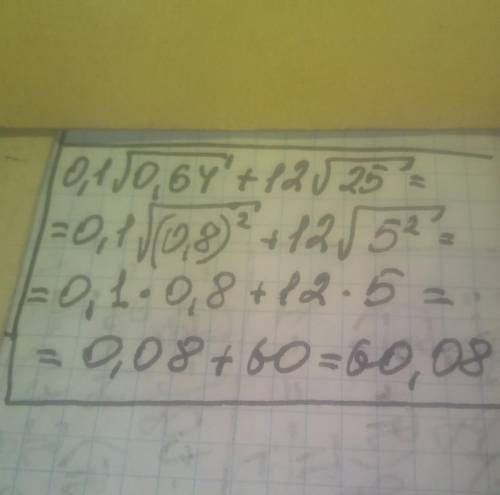 0,1√0,64 + 12√25 =
= 0,1√(0,8)² + 12√5² =
= 0,1 · 0,8 + 12 · 5 =
= 0,08 + 60 = 60,08